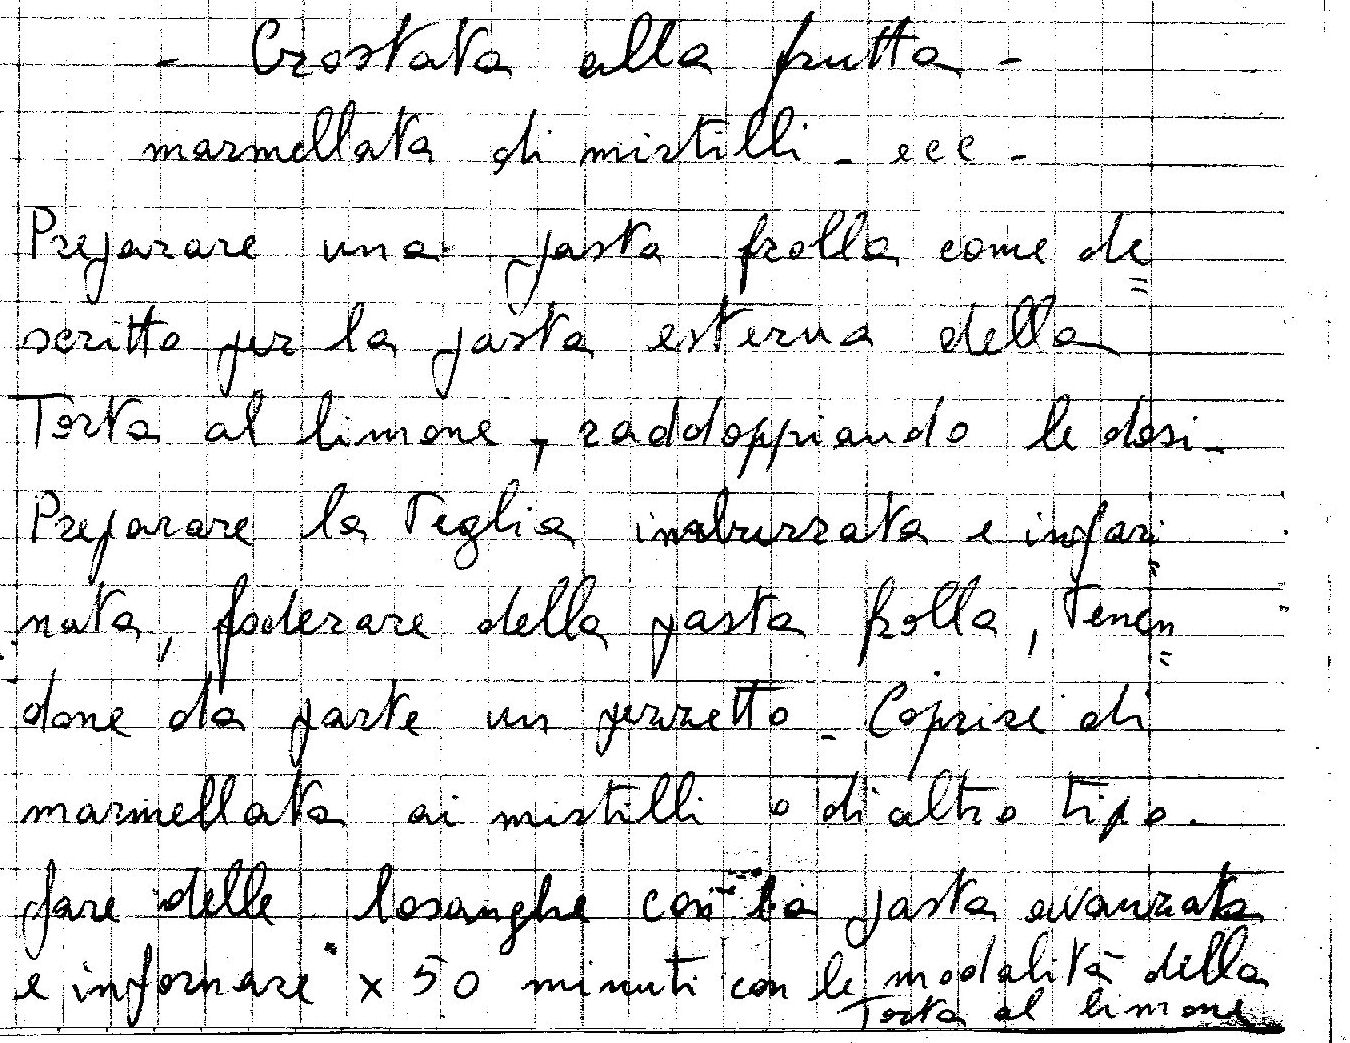 - Crostata alla frutta -
marmellata di mirtilli - ecc -
Preparare una pasta frolla come de=
scritto per la pasta esterna della
Torta al limone, raddoppiando le dosi -
Preparare la Teglia imburrata e infari=
nata, foderare della pasta frolla, Tenen=
done da parte un pezzetto - Coprire di
marmellata ai mirtilli o di altro tipo.
fare delle losanghe con la pasta avanzata
e infornare x 50 minuti con le modalità della
Torta al limone